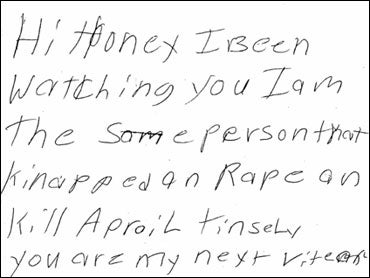 Hi Honey I Been
Watching you I am
the Same person that
kinapped an Rape an
Kill Aproil tinsely
you are my next viteom